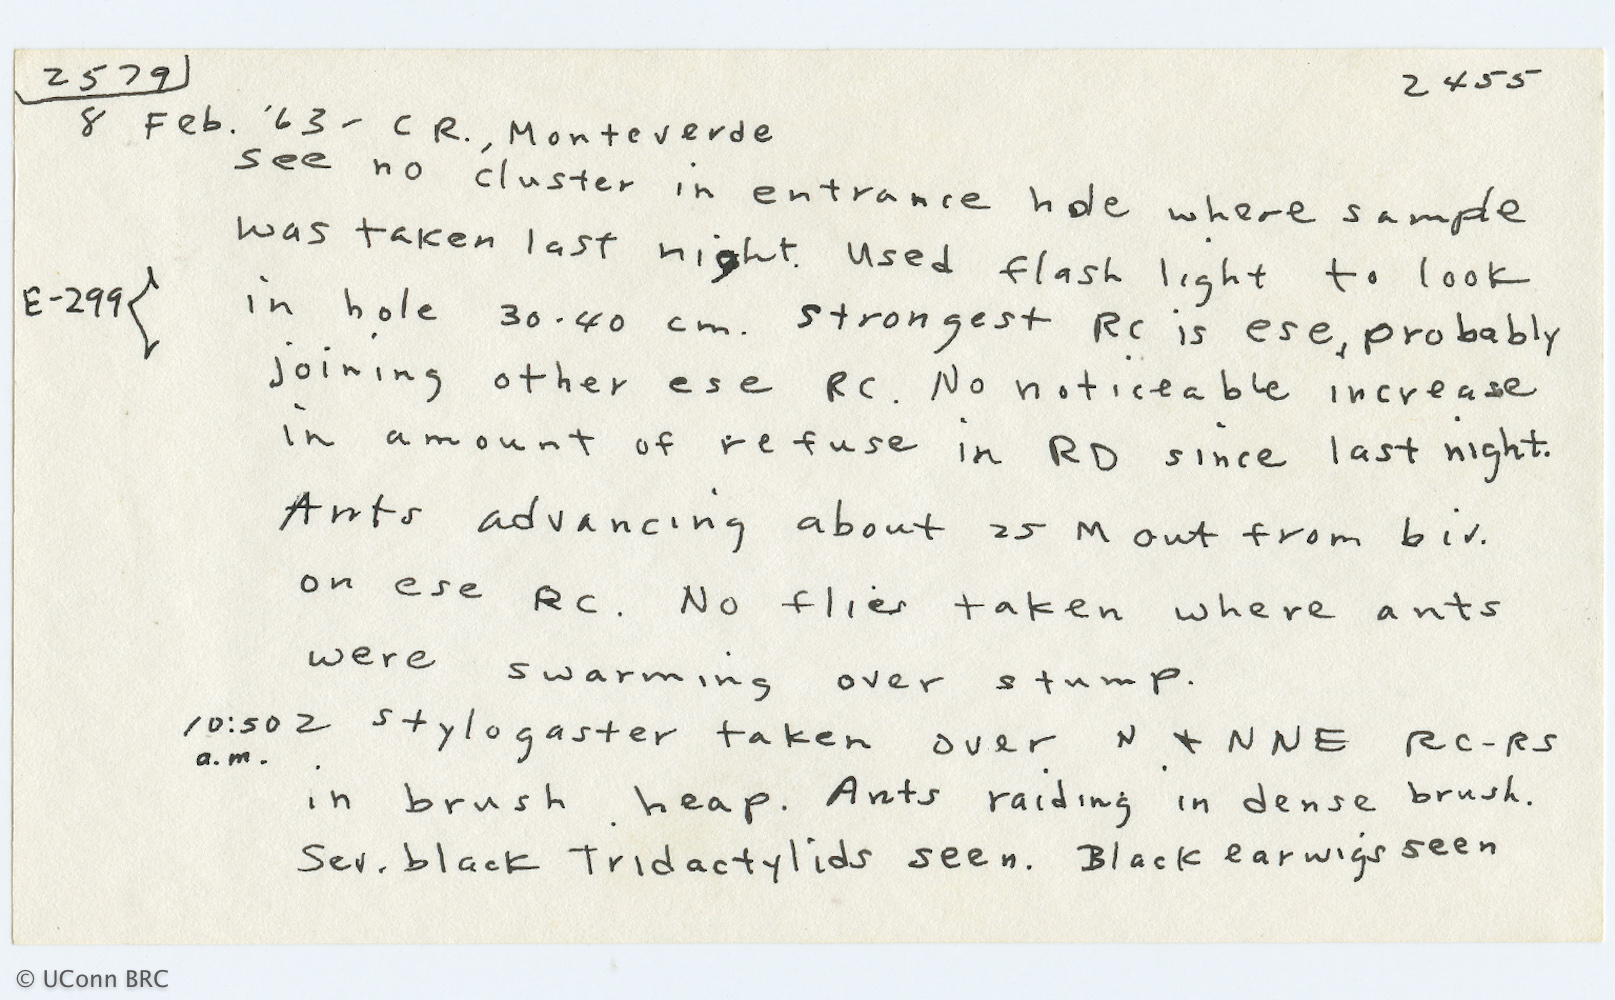 2579 2455
8 Feb. '63 - CR., Monteverde
see no cluster in entrance hole where sample
was taken last night. Used flash light to look
E-299 { in hole 30-40 cm. Strongest RC is ese, probably
joining other ese RC. No noticeable increase
in amount of refuse in RD since last night.
Ants advancing about 25 M out from biv.
on ese RC. No flies taken where ants
were swarming over stump.
10:50 2 Stylogaster taken over N + NNE RC-RS
a.m.
in brush heap. Ants raiding in dense brush.
Sev. black Tridactylids seen. Black earwigs seen
© UConn BRC